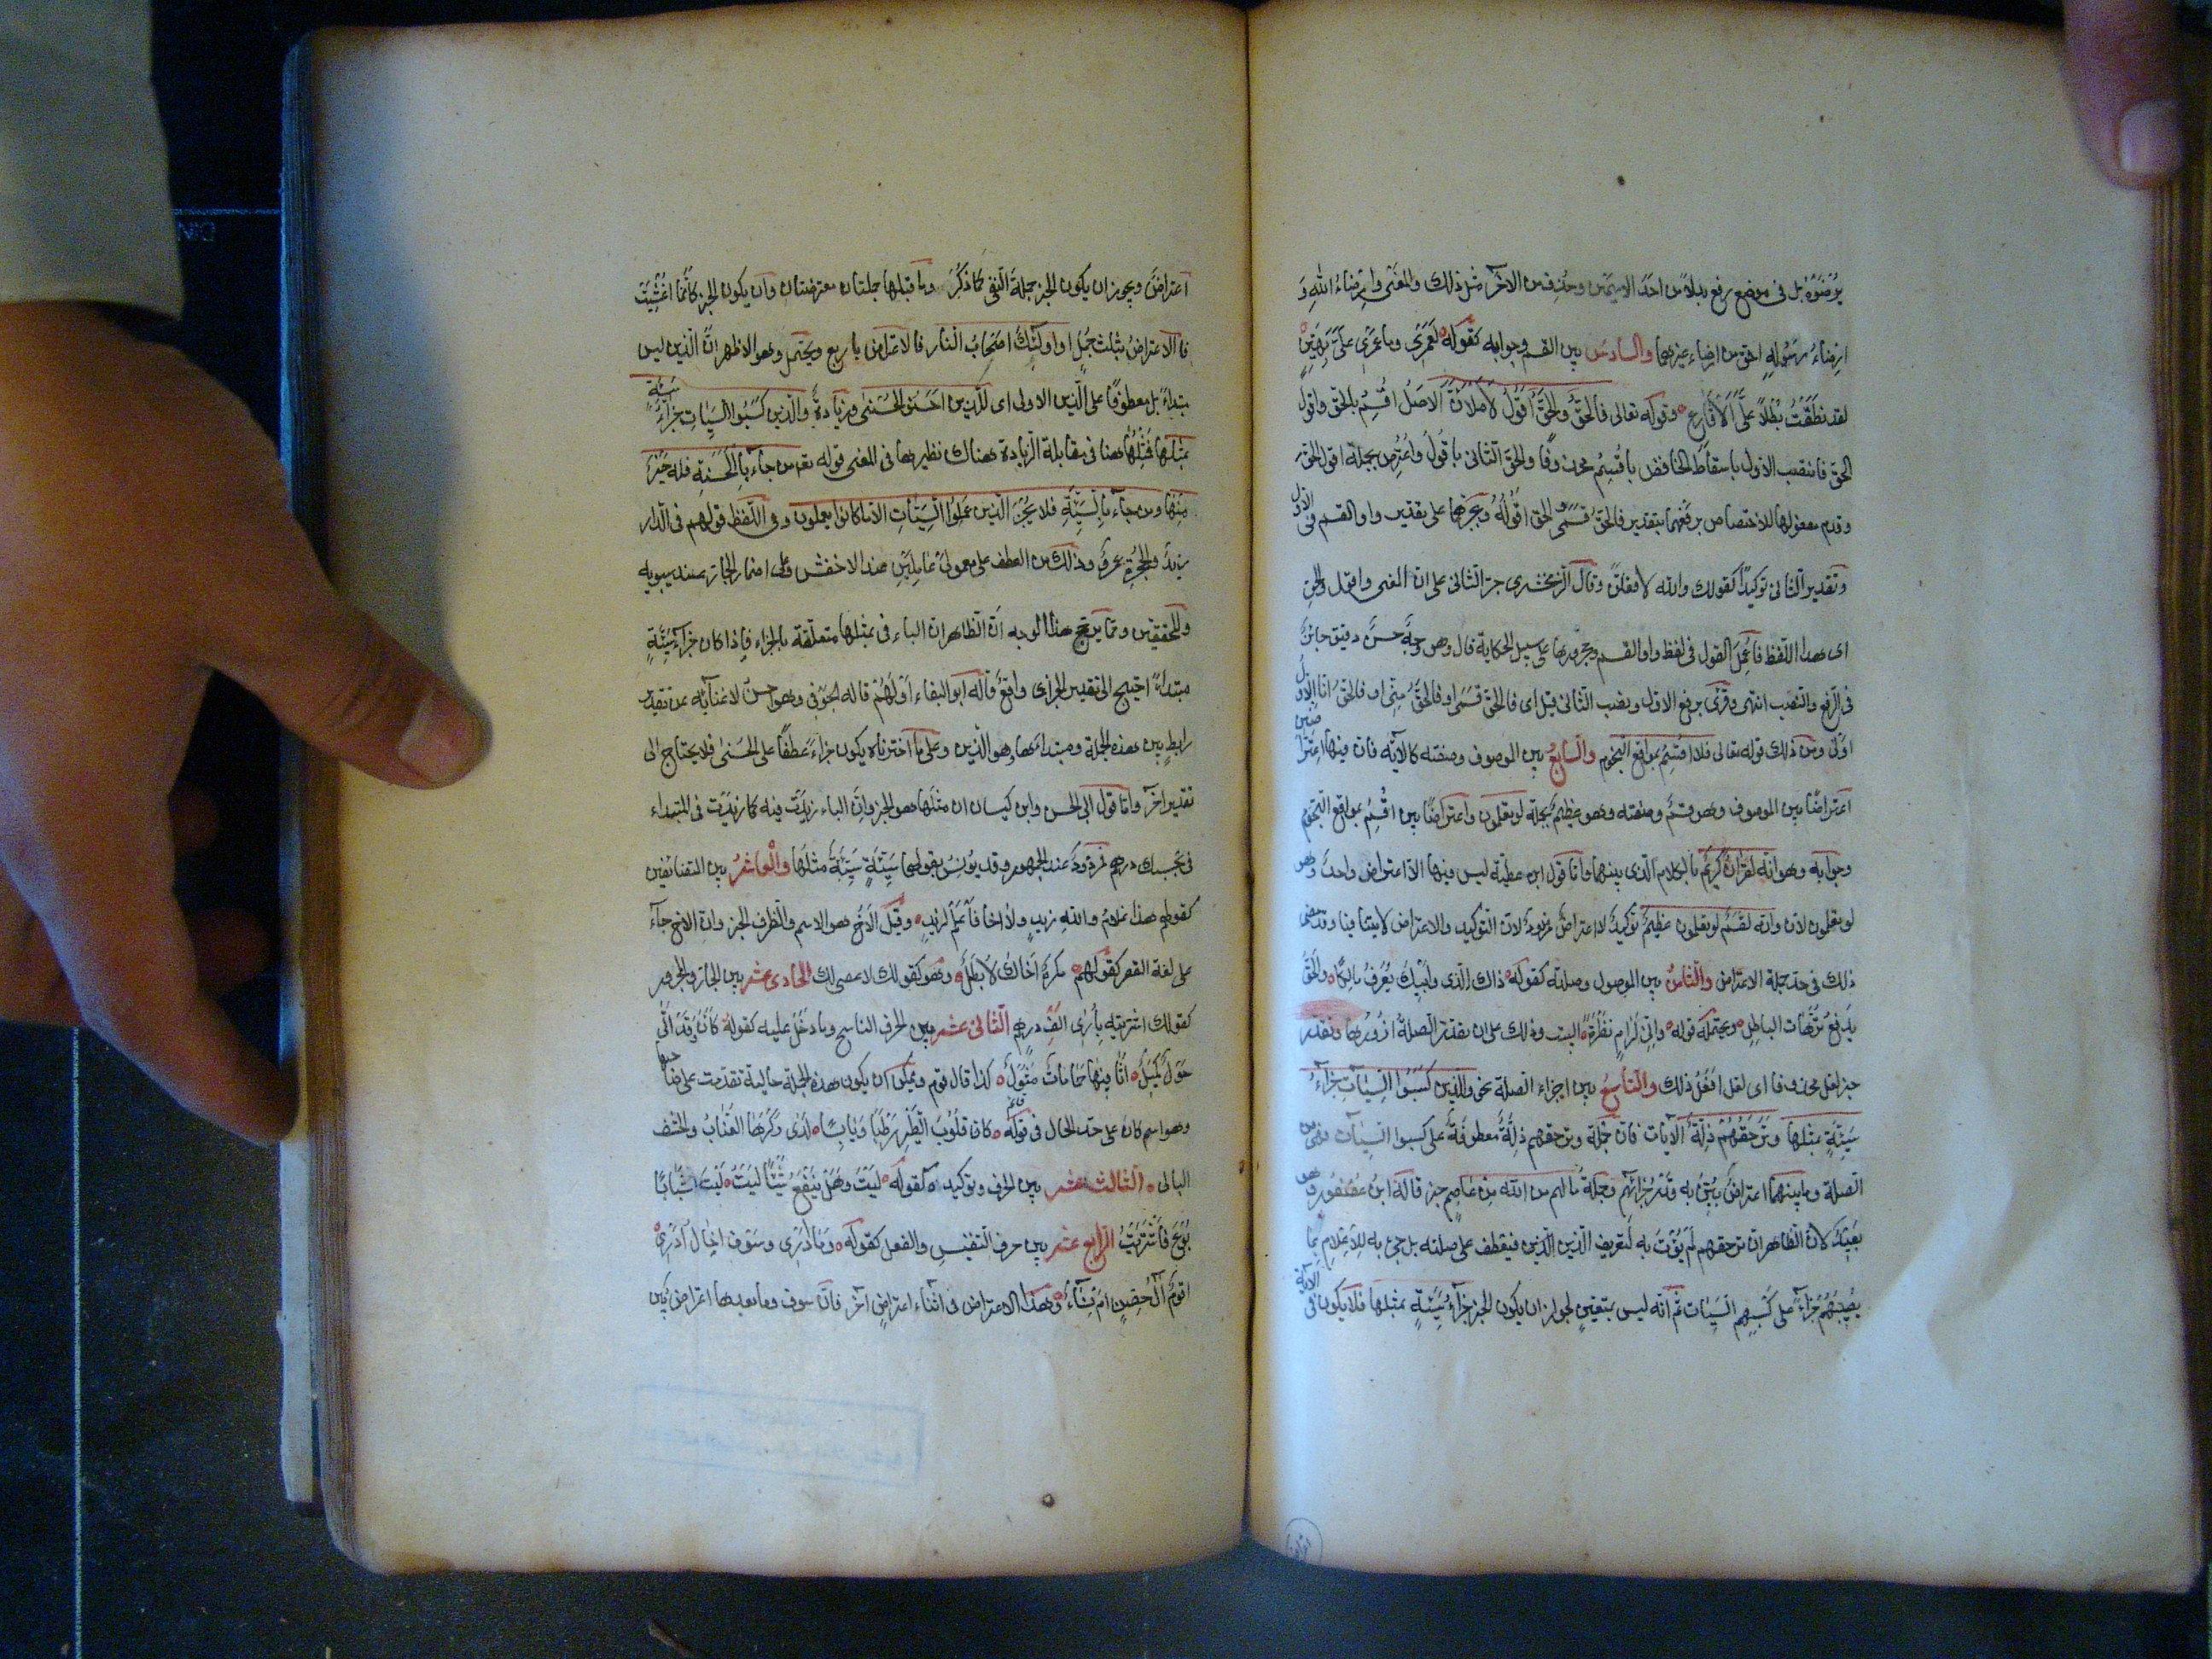 يرضوه بل فى موضع رفع بدلا من احد الاسمين وحذف من الآخر مثل ذلك والمعنى وارضاء الله و
ارضاء رسوله احق من ارضاء غيرهما والسادس بين القسم وجوابه كقوله لعمرى وما عمرى على بهين
لقد نطقت بطلا على الاقارع وقوله تعالى فالحق والحق اقول لاملأن الاصل اقسم بالحق واقول
الحق فانتصب الاول باسقاط الخافض باقسم محذوفا والحق الثانى باقول واعترض بجملة اقول الحق
وقدم معمولها للاختصاص برفعهما بتقدير فالحق قسمى والحق اقوله وبجرهما على تقدير واو القسم فى الاول
وتقدير الثانى توكيدا كقولك والله والله لافعلن وقال الزمخشرى جر الثانى على ان المعنى واقول والحق
اى هذا اللفظ فاعمل القول فى لفظ واو القسم ومجرورها على سبيل الحكاية قال وهو وجه حسن دقيق جائز
فى الرفع والنصب انتهى وقرئ برفع الاول ونصب الثانى قيل اى فالحق قسمى او فالحق منى او فالحق انا والاول
اولى ومن ذلك قوله تعالى فلا اقسم بمواقع النجوم والسابع بين الموصوف وصفته كالآية فان فيها اعتراضين
اعتراضا بين الموصوف وهو قسم وصفته وهو عظيم بجملة لو تعلمون واعتراضا بين اقسم بمواقع النجوم
وجوابه وهو انه لقرآن كريم بالكلام الذى بينهما واما قول ابن عطية ليس فيها الا اعتراض واحد وهو
لو تعلمون لان وانه لقسم لو تعلمون عظيم توكيد لا اعتراض فمردود لان التوكيد والاعتراض لا يتنافيا وقد مضى
ذلك فى حد جملة الاعتراض والثامن بين الموصول وصلته كقوله ذاك الذى وابيك يعرف مالكا والحق
يدفع ترهات الباطل ويحتمله قوله وانى لرام نظرة البيت وذلك على ان تقدر الصلة ازورها وتقدر
خبر لعل محذوفا اى لعلى افعل ذلك والتاسع بين اجزاء الصلة نحو والذين كسبوا السيئات جزاء
سيئة بمثلها وترهقهم ذلة الآيات فان جملة وترهقهم ذلة معطوفة على كسبوا السيئات فهى من
الصلة وما بينهما اعتراض بين به قدر جزائهم وجملة ما لهم من الله من عاصم خبر قاله ابن عصفور وهو
بعيد لان الظاهر ان ترهقهم لم يؤت به لتعريف الذين فيعطف على صلته بل جئ به للاعلام بما
يصيبهم جزاء على كسبهم السيئات ثم انه ليس بمتعين لجواز ان يكون الخبر جزاء سيئة بمثلها فلا يكون فى الآية
اعتراض ويجوز ان يكون الخبر جملة النفى كما ذكر وما قبلها جملتان معترضتان وان يكون الخبر كأنما اغشيت
فالاعتراض بثلث جمل او اولئك اصحاب النار فالاعتراض باربع ويحتمل وهو الاظهر ان الذين ليس
مبتداء بل معطوفا على الذين الاولى اى للذين احسنوا الحسنى وزيادة والذين كسبوا السيئات جزاء سيئة
بمثلها فمثلها هنا فى مقابلة الزيادة هناك نظيرها فى المعنى قوله تعالى من جاء بالحسنة فله خير
منها ومن جاء بالسيئة فلا يجزى الذين عملوا السيئات الا ما كانوا يعملون وفى اللفظ قولهم فى الدار
زيد والحجرة عمرو وذلك من العطف على معمولى عاملين عند الاخفش وعلى اضمار الجار عند سيبويه
والمحققين ومما يرجح هذا الوجه ان الظاهر ان الباء فى بمثلها متعلقة بالجزاء فاذا كان جزاء سيئة
مبتداء احتيج الى تقدير الخبر اى واقع قاله ابو البقاء او لهم قاله الحوفى وهو احسن لاغنائه عن تقدير
رابط بين هذه الجملة ومبتدائها وهو الذين وعلى ما اخترناه يكون جزاء عطفا على الحسنى فلا يحتاج الى
تقدير آخر واما قول ابى الحسن وابن كيسان ان مثلها هو الخبر وان الباء زيدت فيه كما زيدت فى المبتداء
فى بحسبك درهم فمردود عند الجمهور وقد يؤنس بقولهما سيئة سيئة مثلها والعاشر بين المتضائفين
كقولهم هذا غلام والله زيد ولا اخا فاعلم لزيد وقيل الاخ هو الاسم والظرف الخبر وان الاخ جاء
على لغة القصر كقولهم مكره اخاك لا بطل وهو كقولك لا عصى لك الحادى عشر بين الجار والمجرور
كقولك اشتريته بارى الف درهم الثانى عشر بين الحرف الناسخ وما دخل عليه كقوله كأن وقد اتى
حول كميل اثافيها حمامات مثول كذا قال قوم ويمكن ان يكون هذه الجملة حالية تقدمت على صاحبها
وهو اسم كان على حد الحال فى قوله كأن قلوب الطير رطبا ويابسا لدى وكرها العناب والحشف
البالى الثالث عشر بين الحرف وتوكيده كقوله ليت وهل ينفع شيئا ليت ليت شبابا
بوع فاشتريت الرابع عشر بين حرف التنفيس والفعل كقوله وما ادرى وسوف اخال ادرى
اقوم آل حصن ام نساء وهذا الاعتراض فى اثناء اعتراض آخر فان سوف وما بعدها اعتراض بين